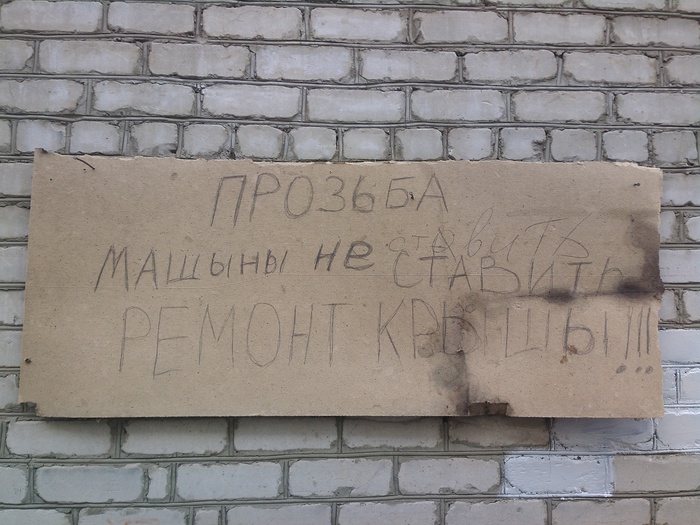 ПРОЗЬБА
МАШЫНЫ НЕ ставить СТАВИТЬ
РЕМОНТ КРЫШЫ!!!